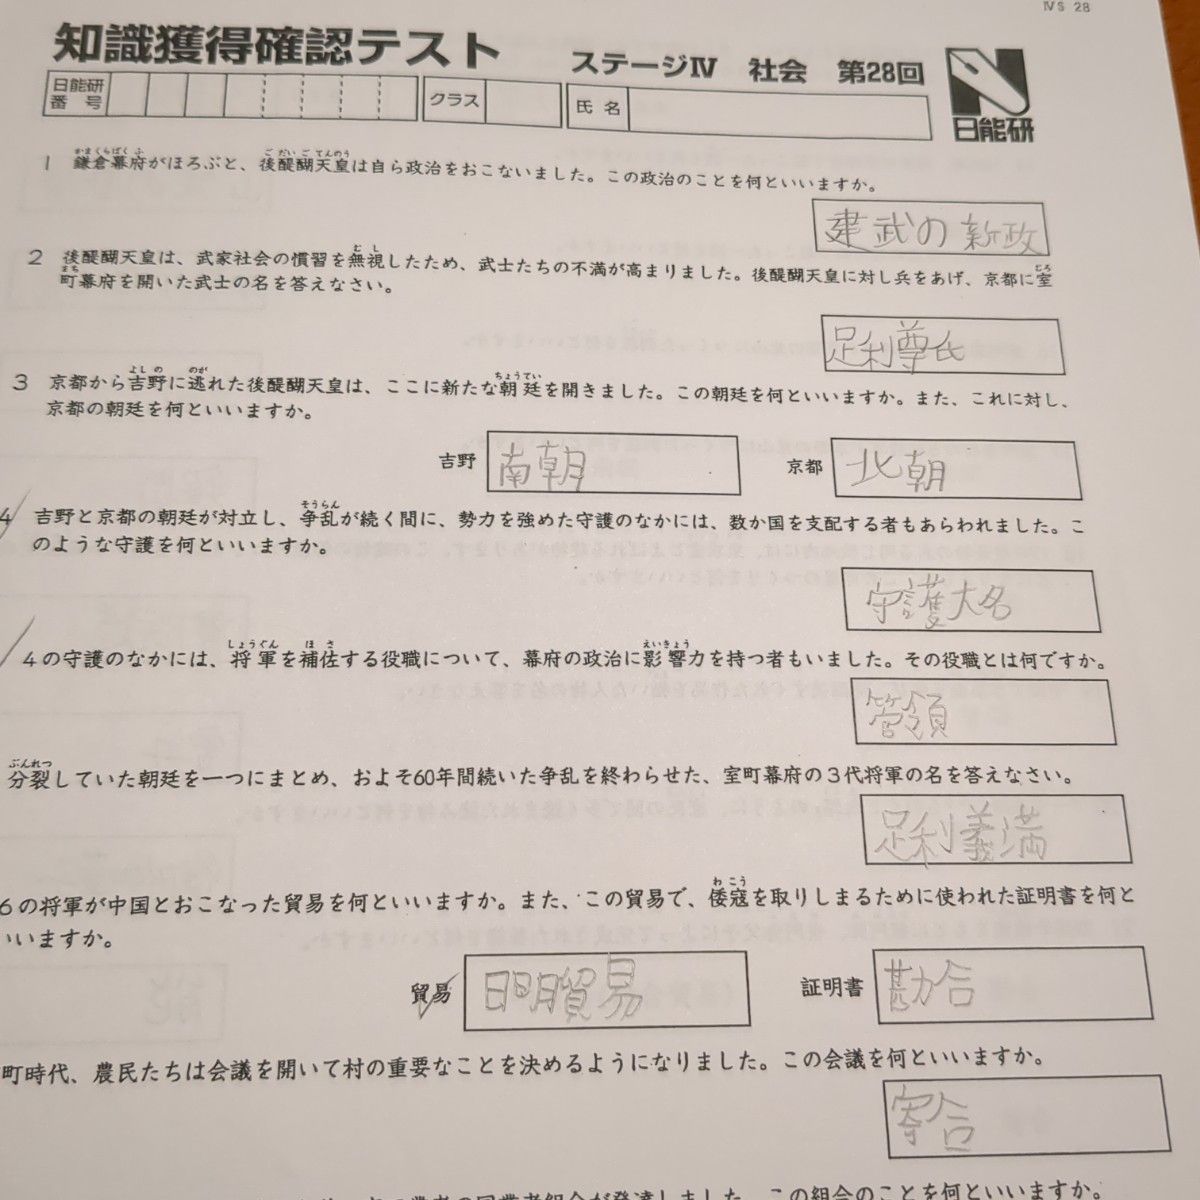 ⅣS 28
知識獲得確認テスト ステージⅣ 社会 第28回
日能研
番号 クラス 氏名
日能研
1 鎌倉幕府がほろぶと、後醍醐天皇は自ら政治をおこないました。この政治のことを何といいますか。
建武の新政
2 後醍醐天皇は、武家社会の慣習を無視したため、武士たちの不満が高まりました。後醍醐天皇に対し兵をあげ、京都に室
町幕府を開いた武士の名を答えなさい。
足利尊氏
3 京都から吉野に逃れた後醍醐天皇は、ここに新たな朝廷を開きました。この朝廷を何といいますか。また、これに対し、
京都の朝廷を何といいますか。
吉野 南朝 京都 北朝
4 吉野と京都の朝廷が対立し、争乱が続く間に、勢力を強めた守護のなかには、数か国を支配する者もあらわれました。こ
のような守護を何といいますか。
守護大名
4の守護のなかには、将軍を補佐する役職について、幕府の政治に影響力を持つ者もいました。その役職とは何ですか。
管領
分裂していた朝廷を一つにまとめ、およそ60年間続いた争乱を終わらせた、室町幕府の3代将軍の名を答えなさい。
足利義満
6の将軍が中国とおこなった貿易を何といいますか。また、この貿易で、倭寇を取りしまるために使われた証明書を何と
いいますか。
貿易 日明貿易 証明書 勘合
町時代、農民たちは会議を開いて村の重要なことを決めるようになりました。この会議を何といいますか。
寄合
の同業者組合が発達しました。この組合のことを何といいますか。